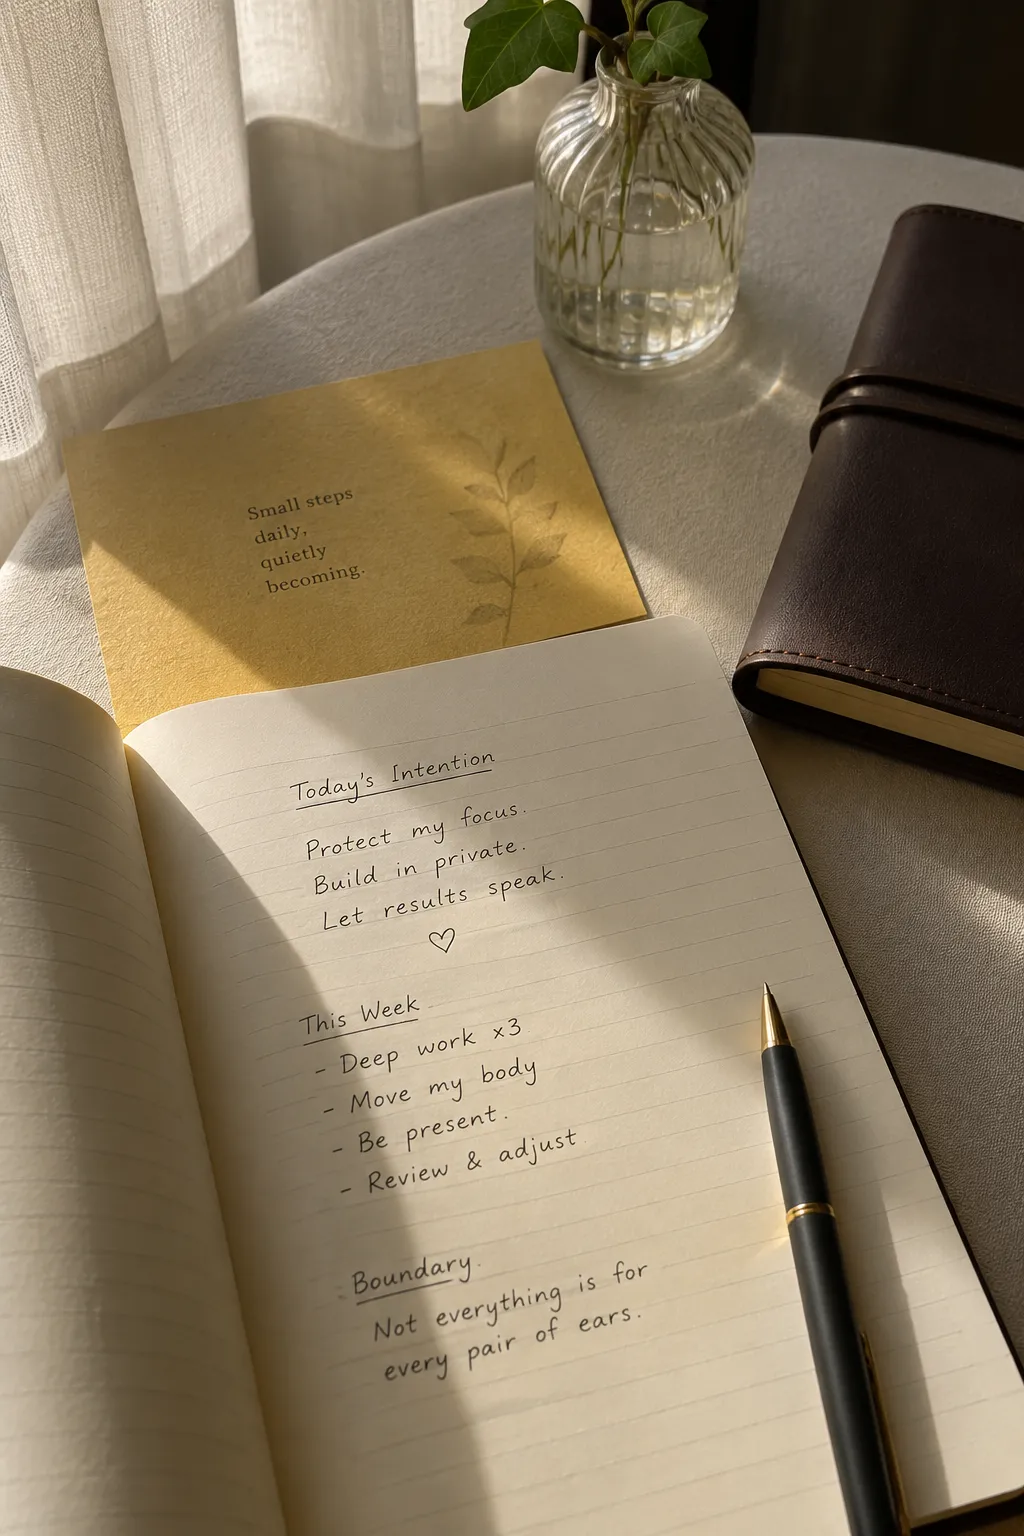 Small steps
daily,
quietly
becoming.
Today's Intention
Protect my focus.
Build in private.
Let results speak.
♡
This Week
- Deep work x3
- Move my body
- Be present.
- Review & adjust
Boundary.
Not everything is for
every pair of ears.